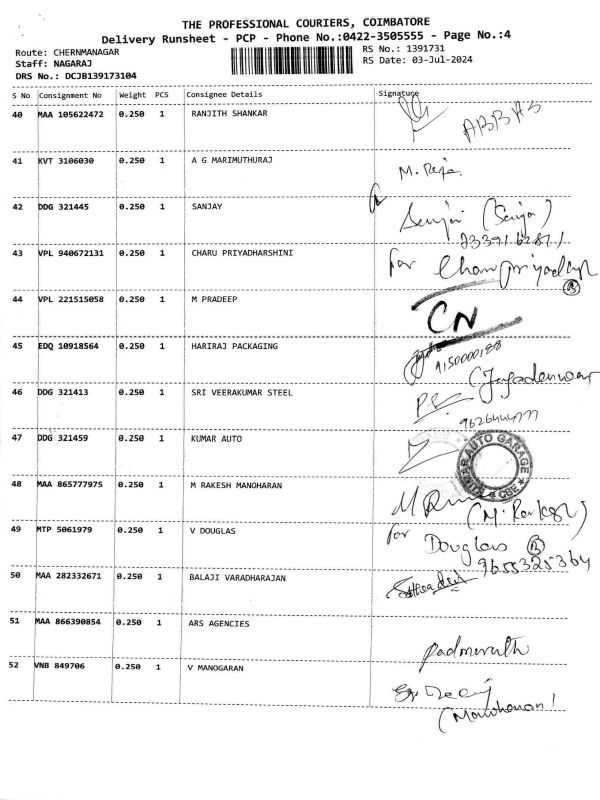 THE PROFESSIONAL COURIERS, COIMBATORE
Delivery Runsheet - PCP - Phone No.:0422-3505555 - Page No.:4
Route: CHERNMANAGAR
RS No.: 1391731
Staff: NAGARAJ
RS Date: 03-Jul-2024
DRS No.: DCJB139173104
S No Consignment No Weight PCS Consignee Details Signature
40 MAA 105622472 0.250 1 RANJITH SHANKAR ABBAS
41 KVT 3106030 0.250 1 A G MARIMUTHURAJ M. Raja
42 DDG 321445 0.250 1 SANJAY
43 VPL 940672131 0.250 1 CHARU PRIYADHARSHINI for
44 VPL 221515058 0.250 1 M PRADEEP CN
45 EDQ 10918564 0.250 1 HARIRAJ PACKAGING 9150000188
46 DDG 321413 0.250 1 SRI VEERAKUMAR STEEL
47 DDG 321459 0.250 1 KUMAR AUTO AUTO GARAGE CBE
48 MAA 865777975 0.250 1 M RAKESH MANOHARAN
49 MTP 5061979 0.250 1 V DOUGLAS for Douglas
9655325364
50 MAA 282332671 0.250 1 BALAJI VARADHARAJAN
51 MAA 866390854 0.250 1 ARS AGENCIES
52 VNB 849706 0.250 1 V MANOGARAN